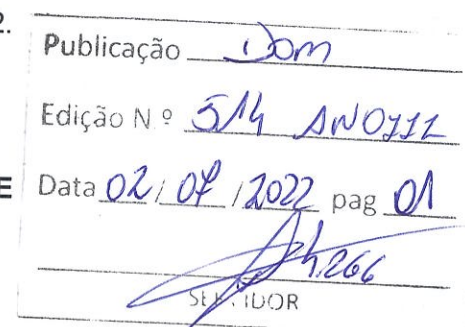 2.
Publicação Dom
Edição N.º 514 ANO III
E
Data 02 / 07 / 2022 pag 01
SERVIDOR